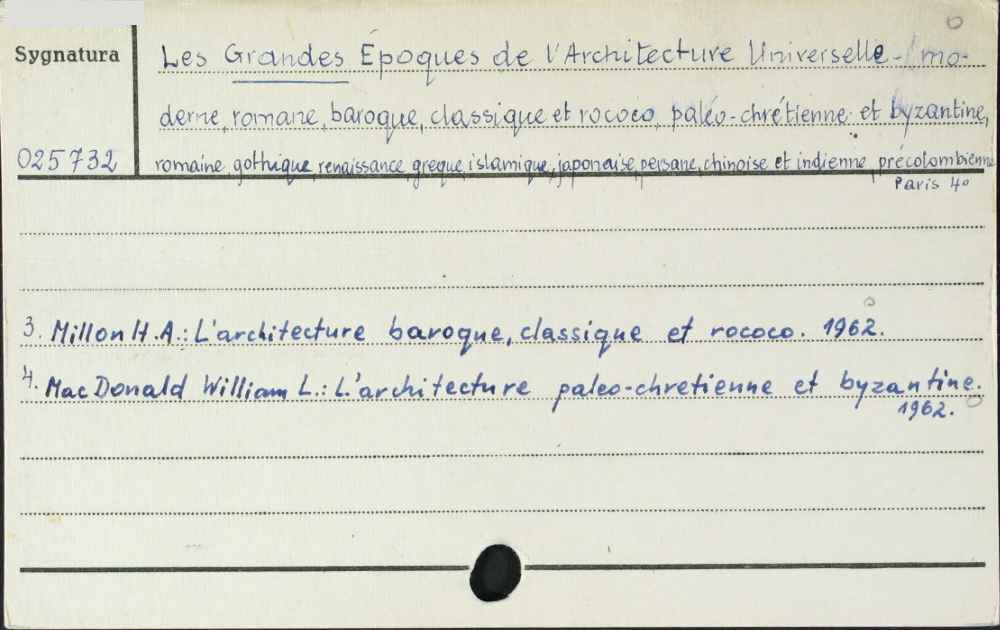 Sygnatura
Les Grandes Époques de l'Architecture Universelle - /mo-
derne, romane, baroque, classique et rococo, paléo-chrétienne et byzantine,
025732
romaine, gothique, renaissance, greque, islamique, japonaise, persane, chinoise et indienne, précolombienne
Paris 4°
3. Millon H.A.: L'architecture baroque, classique et rococo. 1962.
4. MacDonald William L.: L'architecture paleo-chretienne et byzantine.
1962.